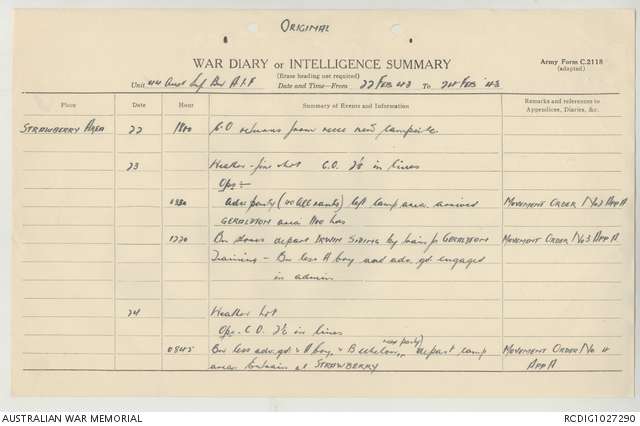 ORIGINAL
WAR DIARY or INTELLIGENCE SUMMARY
Army Form C.2118
(adapted)
(Erase heading not required)
Unit 44 Aust Inf Bn A.I.F Date and Time—From 22 FEB 43 To 24 FEB 43
Place Date Hour Summary of Events and Information Remarks and references to
Appendices, Diaries, &c.
STRAWBERRY AREA 22 1800 C.O returns from recce new campsite.
23 Weather - fine hot C.O. in lines
Ops :-
Adv party ( all ranks) left camp area arrived MOVEMENT ORDER No 2 APP A
GERALDTON area hrs
1220 Bn stores depart IRWIN SIDING by train for GERALDTON MOVEMENT ORDER No 3 APP A
Training - Bn less A Coy and adv. gd engaged
in admin
24 Weather hot
Ops. C.O. in lines
(rear party)
0845 Bn less adv. gd & A Coy, & B echelon, depart camp MOVEMENT ORDER No 4
area Entrain at STRAWBERRY APP A
AUSTRALIAN WAR MEMORIAL RCDIG1027290